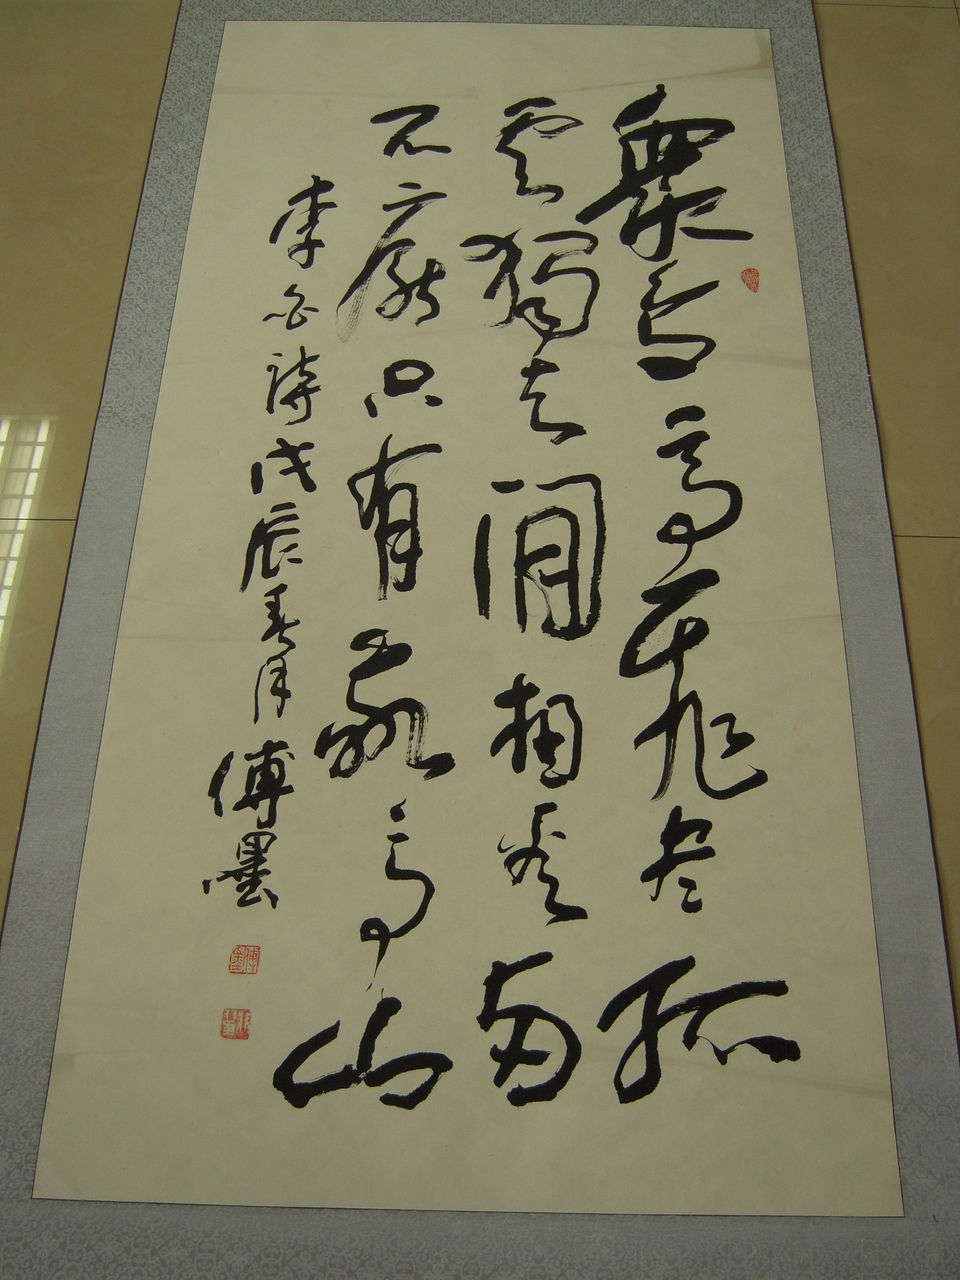 眾鳥高飛盡孤
雲獨去閒相看兩
不厭只有敬亭山
李白詩戊辰春月傅墨